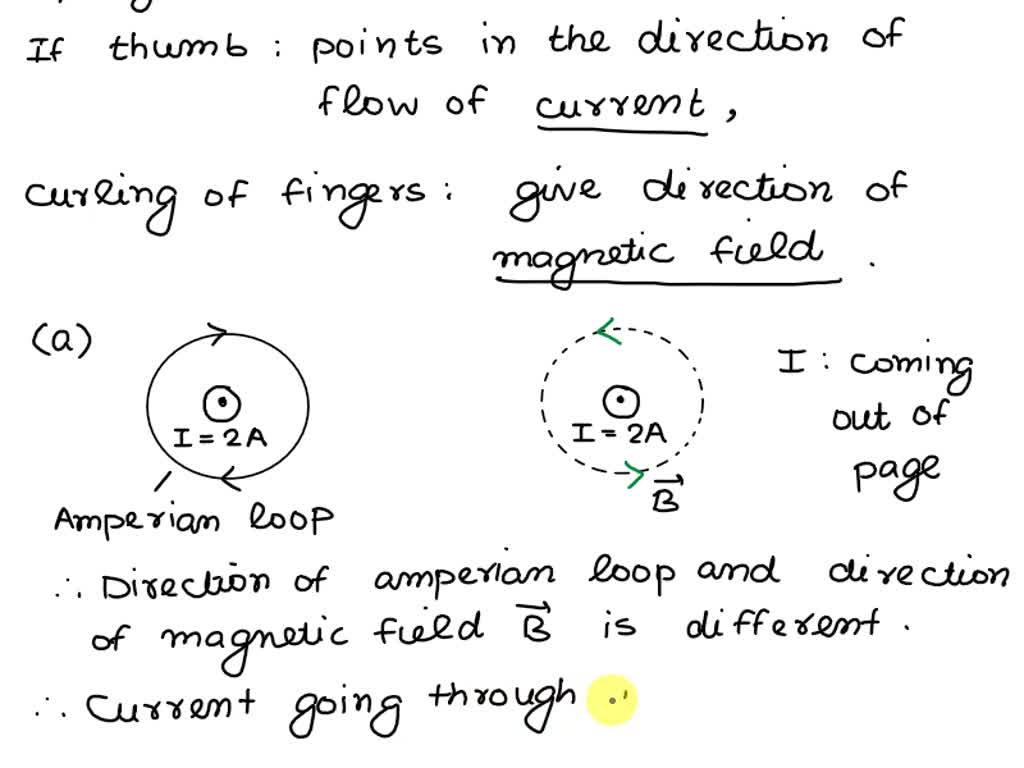 If thumb : points in the direction of
flow of current,
curling of fingers : give direction of
magnetic field .
(a)
I = 2A
I = 2A
I : coming
out of
page
B
Amperian loop
∴ Direction of amperian loop and direction
of magnetic field B is different .
∴ Current going through